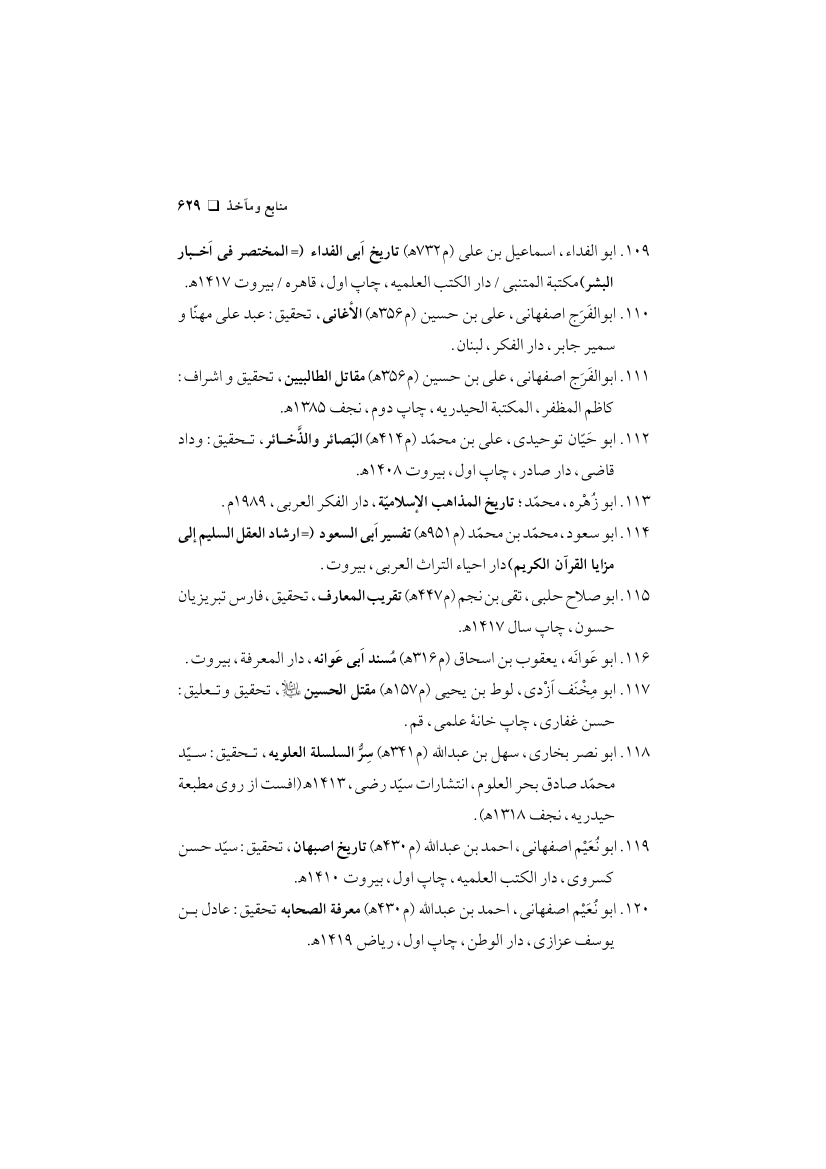 منابع ومآخذ ❑ ۶۲۹
۱۰۹. ابو الفداء، اسماعیل بن علی (م۷۳۲ه‍) تاریخ اَبی الفداء (= المختصر فی اَخبار
البشر)مکتبة المتنبی / دار الکتب العلمیه، چاپ اول، قاهره / بیروت ۱۴۱۷ه‍.
۱۱۰. ابوالفَرَج اصفهانی، علی بن حسین (م۳۵۶ه‍) الأغانی، تحقیق: عبد علی مهنّا و
سمیر جابر، دار الفکر، لبنان.
۱۱۱. ابوالفَرَج اصفهانی، علی بن حسین (م۳۵۶ه‍) مقاتل الطالبیین، تحقیق و اشراف:
کاظم المظفر، المکتبة الحیدریه، چاپ دوم، نجف ۱۳۸۵ه‍.
۱۱۲. ابو حَیّان توحیدی، علی بن محمّد (م۴۱۴ه‍) البَصائر والذَّخائر، تحقیق: وداد
قاضی، دار صادر، چاپ اول، بیروت ۱۴۰۸ه‍.
۱۱۳. ابو زُهْره، محمّد؛ تاریخ المذاهب الإسلامیّة، دار الفکر العربی، ۱۹۸۹م.
۱۱۴. ابو سعود، محمّد بن محمّد (م۹۵۱ه‍) تفسیر اَبی السعود (= ارشاد العقل السلیم إلی
مزایا القرآن الکریم)دار احیاء التراث العربی، بیروت.
۱۱۵. ابو صلاح حلبی، تقی بن نجم (م۴۴۷ه‍) تقریب المعارف، تحقیق، فارس تبریزیان
حسون، چاپ سال ۱۴۱۷ه‍.
۱۱۶. ابو عَوانَه، یعقوب بن اسحاق (م۳۱۶ه‍) مُسند اَبی عَوانه، دار المعرفة، بیروت.
۱۱۷. ابو مِخْنَف اَزْدی، لوط بن یحیی (م۱۵۷ه‍) مقتل الحسین ﷷ، تحقیق وتعلیق:
حسن غفاری، چاپ خانهٔ علمی، قم.
۱۱۸. ابو نصر بخاری، سهل بن عبدالله (م۳۴۱ه‍) سِرُّ السلسلة العلویه، تحقیق: سیّد
محمّد صادق بحر العلوم، انتشارات سیّد رضی، ۱۴۱۳ه‍(افست از روی مطبعة
حیدریه، نجف ۱۳۱۸ه‍).
۱۱۹. ابو نُعَیْم اصفهانی، احمد بن عبدالله (م۴۳۰ه‍) تاریخ اصبهان، تحقیق: سیّد حسن
کسروی، دار الکتب العلمیه، چاپ اول، بیروت ۱۴۱۰ه‍.
۱۲۰. ابو نُعَیْم اصفهانی، احمد بن عبدالله (م۴۳۰ه‍) معرفة الصحابه تحقیق: عادل بن
یوسف عزازی، دار الوطن، چاپ اول، ریاض ۱۴۱۹ه‍.